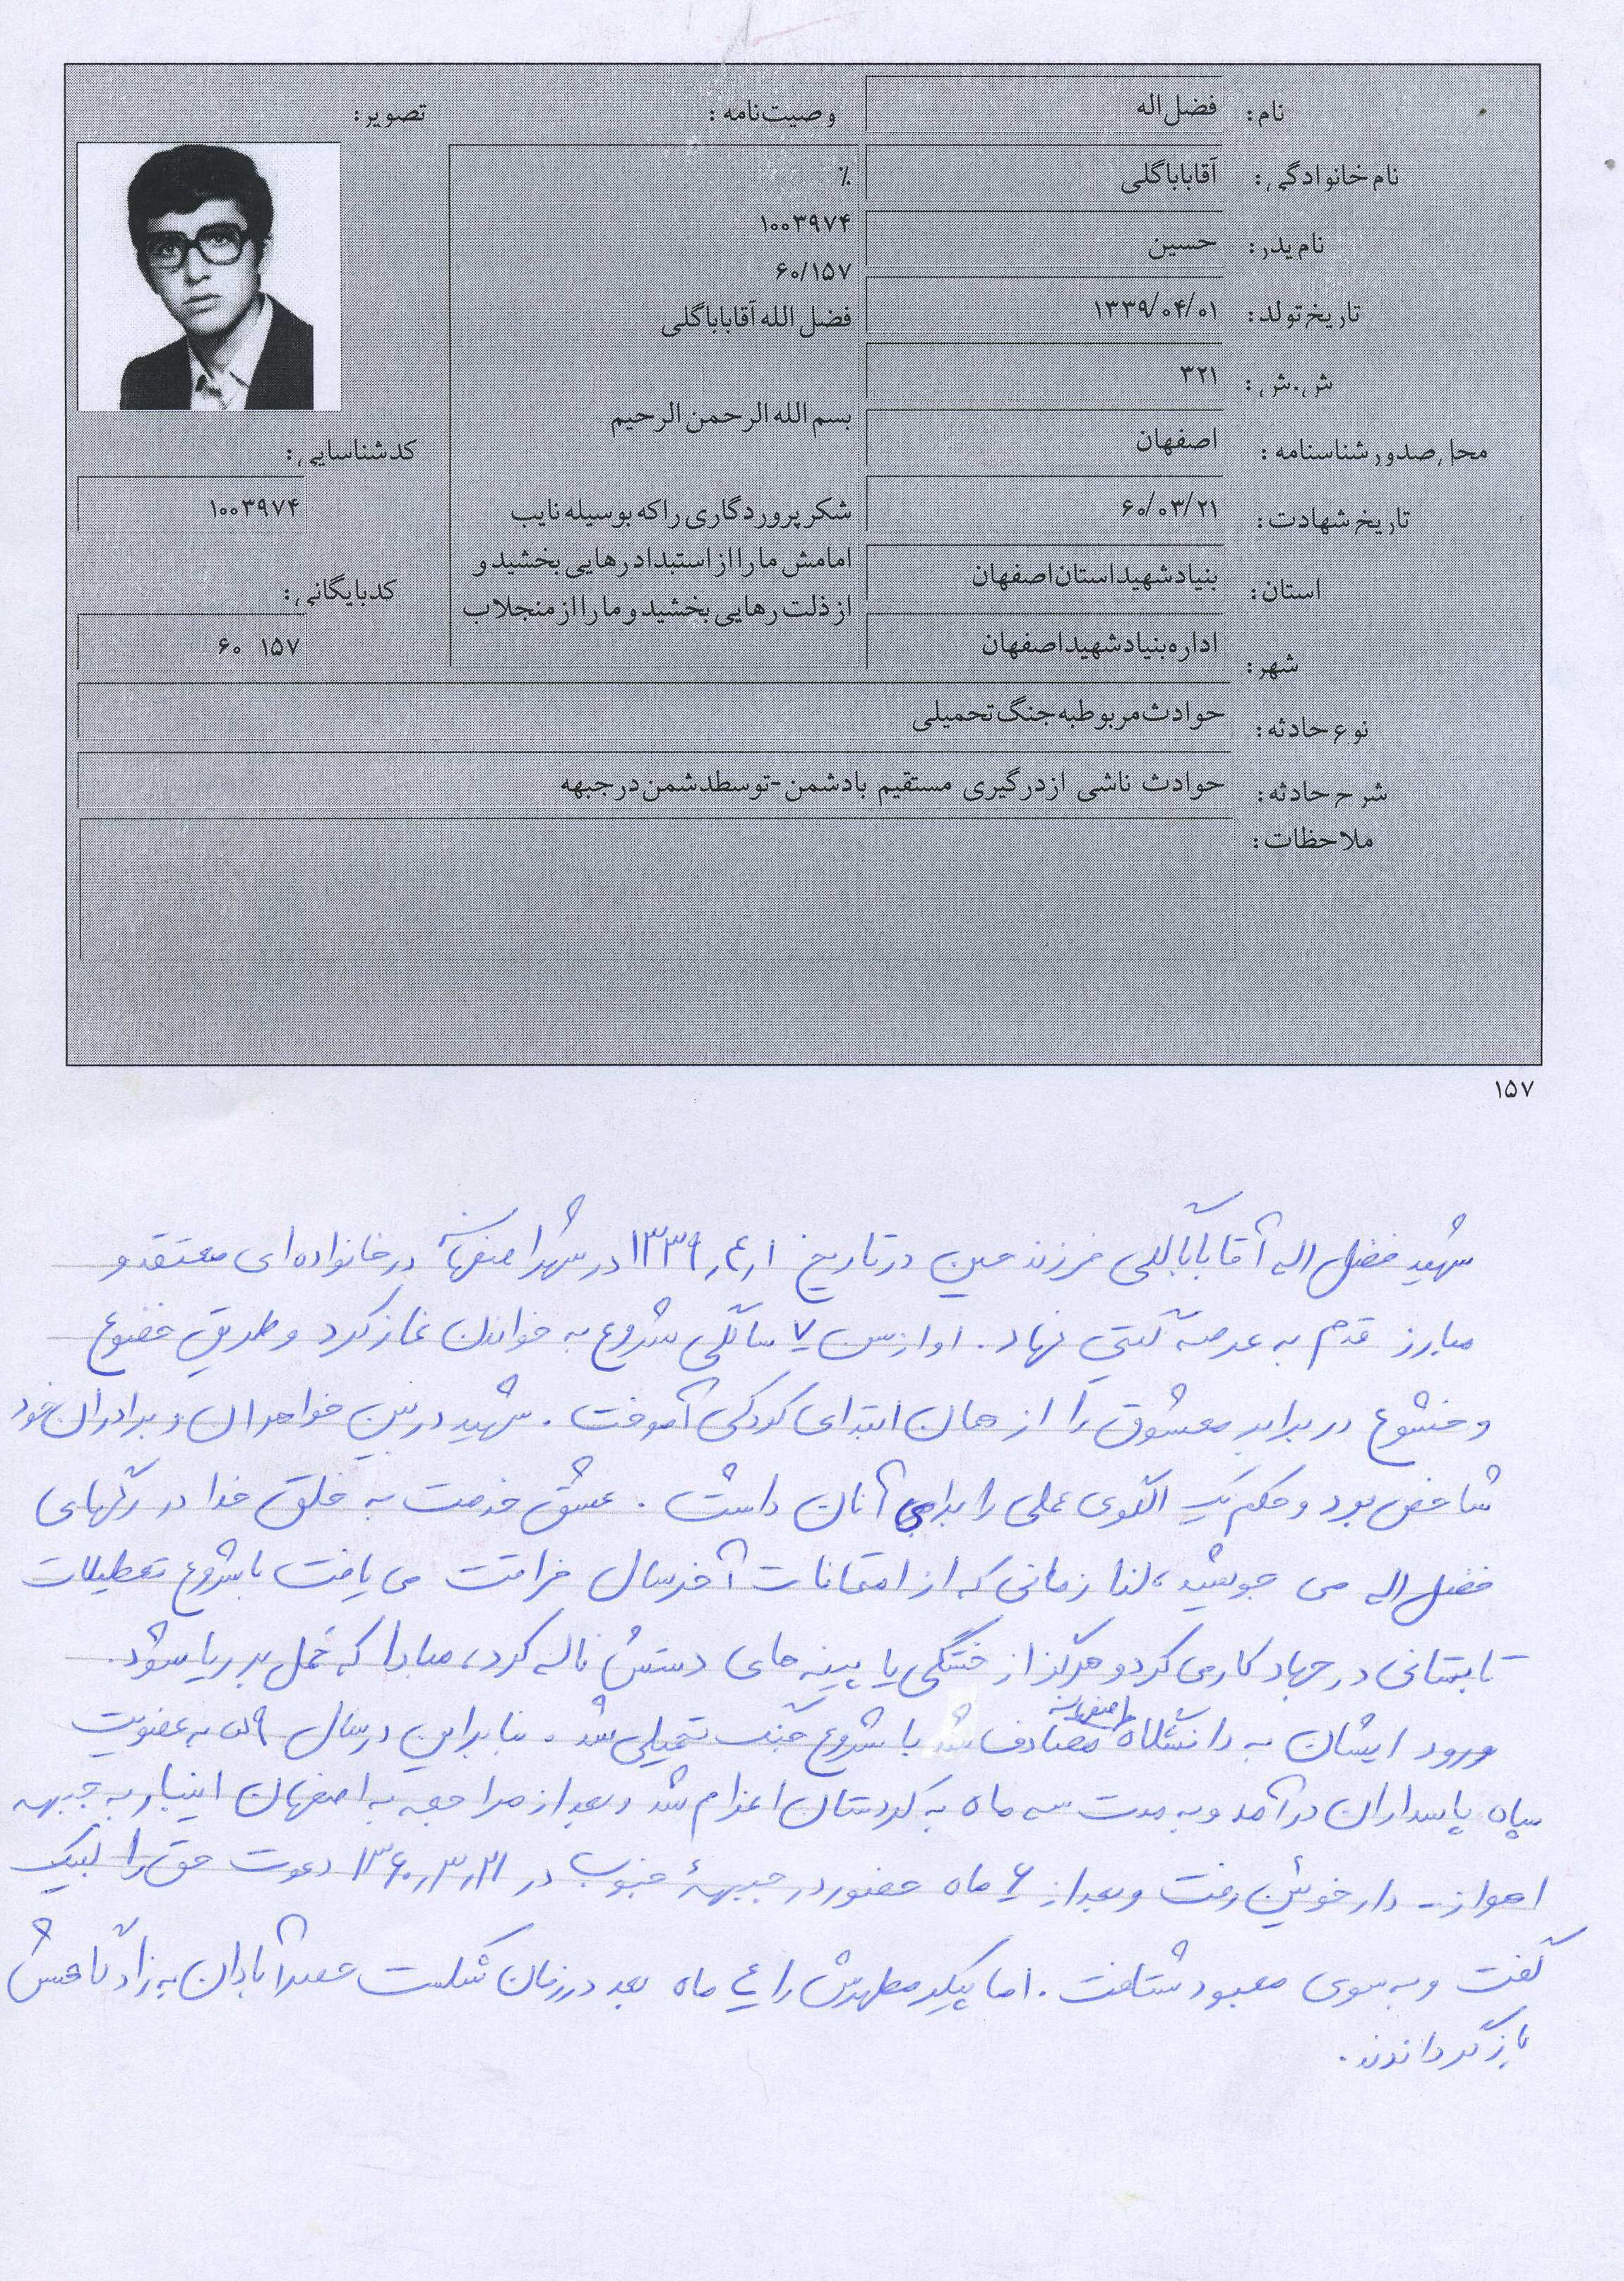 نام: فضل‌اله
نام خانوادگی: آقاباباگلی
نام پدر: حسین
تاریخ تولد: ۱۳۳۹/۰۴/۰۱
ش.ش: ۳۲۱
محل صدور شناسنامه: اصفهان
تاریخ شهادت: ۶۰/۰۳/۲۱
استان: بنیاد شهید استان اصفهان
شهر: اداره بنیاد شهید اصفهان
وصیت‌نامه:
٪
۱۰۰۳۹۷۴
۶۰/۱۵۷
فضل الله آقاباباگلی
بسم الله الرحمن الرحیم
شکر پروردگاری را که بوسیله نایب
امامش ما را از استبداد رهایی بخشید و
از ذلت رهایی بخشید و ما را از منجلاب
تصویر:
کد شناسایی:
۱۰۰۳۹۷۴
کد بایگانی:
۱۵۷ ۶۰
نوع حادثه: حوادث مربوط به جنگ تحمیلی
شرح حادثه: حوادث ناشی از درگیری مستقیم بادشمن-توسط دشمن در جبهه
ملاحظات:
۱۵۷
شهید فضل اله آقاباباگلی فرزند حسین در تاریخ ۱۳۳۹٫۴٫۱ در شهر اصفهان در خانواده‌ای معتقد و
مبارز قدم به عرصه گیتی نهاد. او از سن ۷ سالگی شروع به خواندن نماز کرد و طریق خضوع
و خشوع در برابر معشوق را از همان ابتدای کودکی آموخت. شهید در بین خواهران و برادران خود
شاخص بود و حکم یک الگوی عملی را برای آنان داشت. عشق خدمت به خلق خدا در رگهای
فضل اله می جوشید، لذا زمانی که از امتحانات آخر سال فراغت می یافت با شروع تعطیلات
تابستانی در جهاد کار می کرد و هرگز از خستگی یا پینه های دستش ناله نکرد، مبادا که حمل بر ریا شود.
ورود ایشان به دانشگاه اصفهان مصادف با شروع جنگ تحمیلی شد. بنابراین در سال ۵۹ به عضویت
سپاه پاسداران درآمد و به مدت سه ماه به کردستان اعزام شد و بعد از مراجعه به اصفهان اینبار به جبهه
اهواز - دارخوئین رفت و بعد از ۶ ماه حضور در جبههٔ جنوب در ۱۳۶۰٫۳٫۲۱ دعوت حق را لبیک
گفت و به سوی معبود شتافت. اما پیکر مطهرش را ۴ ماه بعد در زمان شکست حصر آبادان به زادگاهش
بازگرداندند.